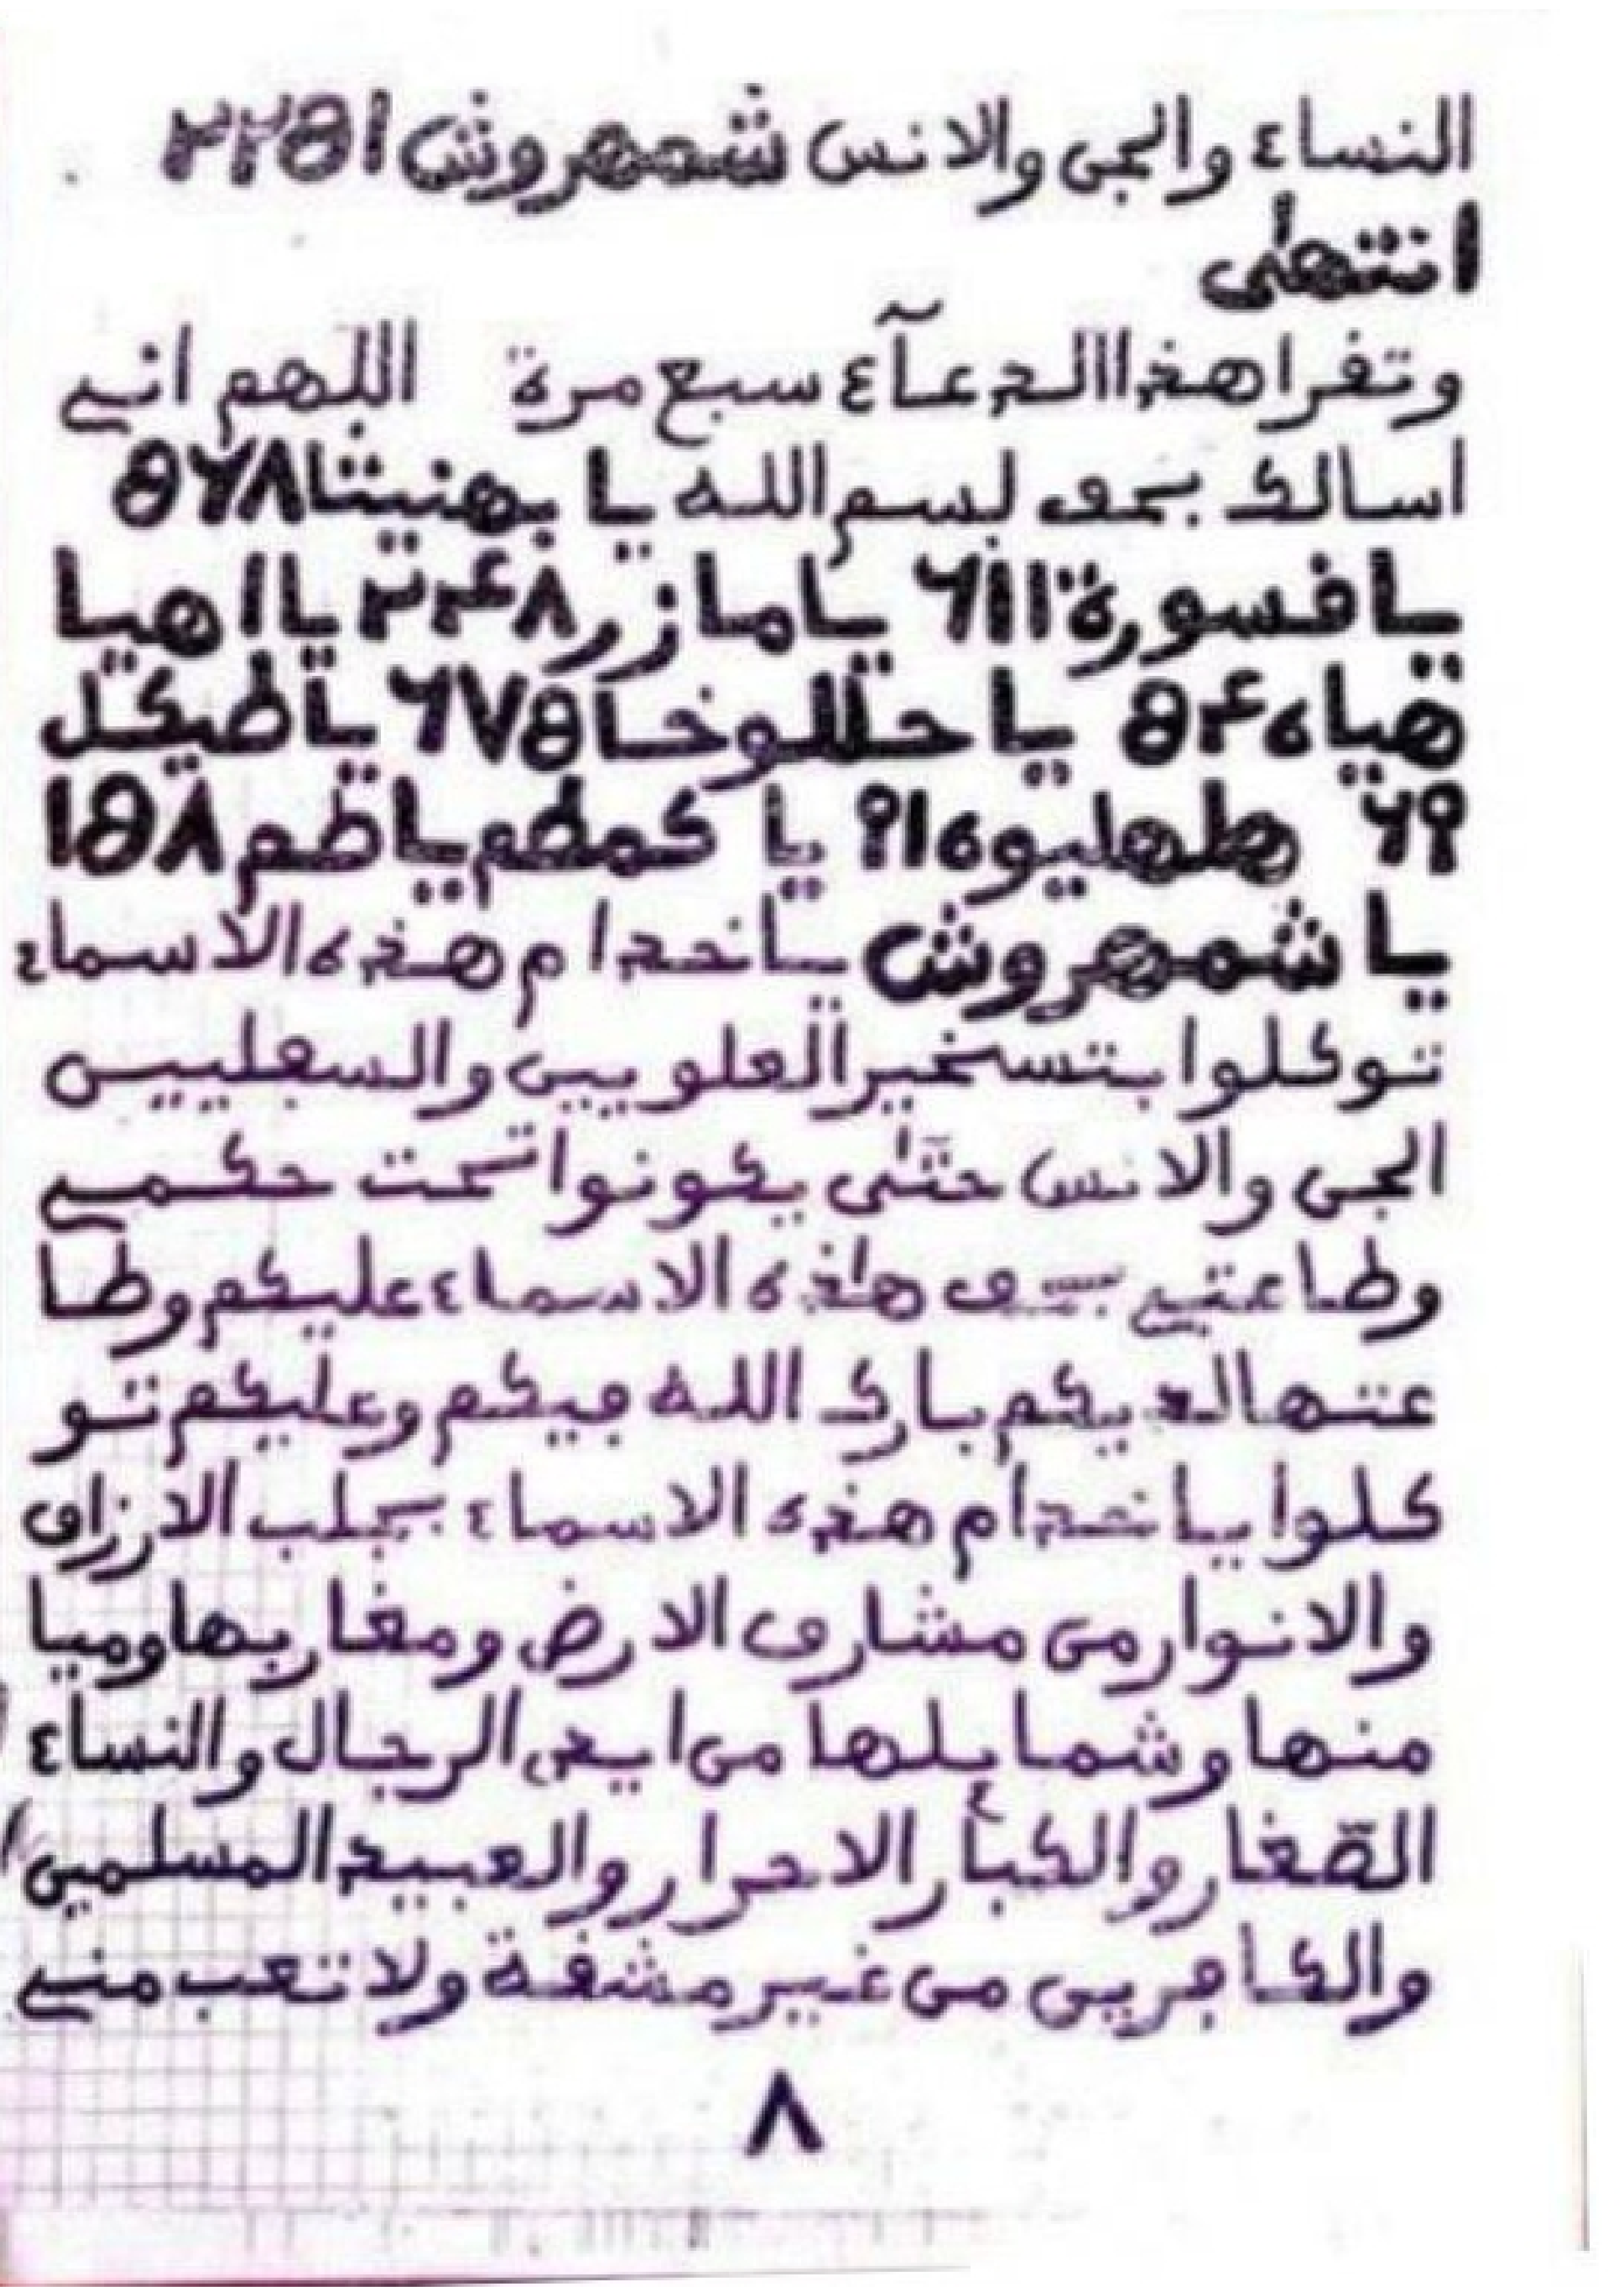 النساء والجن والانس شمهروش ٢٢٥١
انتهى
وتقرا هذا الدعآء سبع مرة اللهم اني
اسالك بحق بسم الله يا بهنيتا ٥٦٨
يا فسورة ٦١١ يا مازر ٢٣٤٨ يا اهيا
هيا ٥٤٥ يا حللوخا ٦٧٥ يا طيكل
٦٩ هلهليوه ١٩ يا كمطم يا طم ١٥٨
يا شمهروش يا خدام هذه الاسماء
توكلوا بتسخير العلويين والسفليين
الجن والانس حتى يكونوا تحت حكمي
وطاعتي بحق هذه الاسماء عليكم وطا
عتها لديكم بارك الله فيكم وعليكم تو
كلوا يا خدام هذه الاسماء بجلب الارزاق
والانوار من مشارق الارض ومغاربها وميا
منها وشمايلها من ايدي الرجال والنساء
الصّغار والكبار الاحرار والعبيد المسلمين
والكافرين من غير مشقة ولا تعب مني
٨